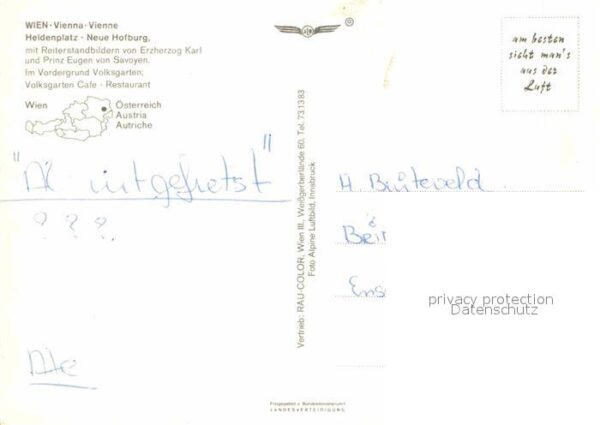 WIEN · Vienna · Vienne
Heldenplatz · Neue Hofburg,
mit Reiterstandbildern von Erzherzog Karl
und Prinz Eugen von Savoyen.
Im Vordergrund Volksgarten;
Volksgarten Cafe · Restaurant
Wien
Österreich
Austria
Autriche
"Al uitgefietst"
? ? ?
Ate
Vertrieb: RAU-COLOR, Wien III., Weißgerberlände 60, Tel. 73 13 83
Foto Alpine Luftbild, Innsbruck
©
am besten
sieht man's
aus der
Luft
H. Buiteveld
Ens
privacy protection
Datenschutz
Freigegeben v. Bundesministerium f.
LANDESVERTEIDIGUNG